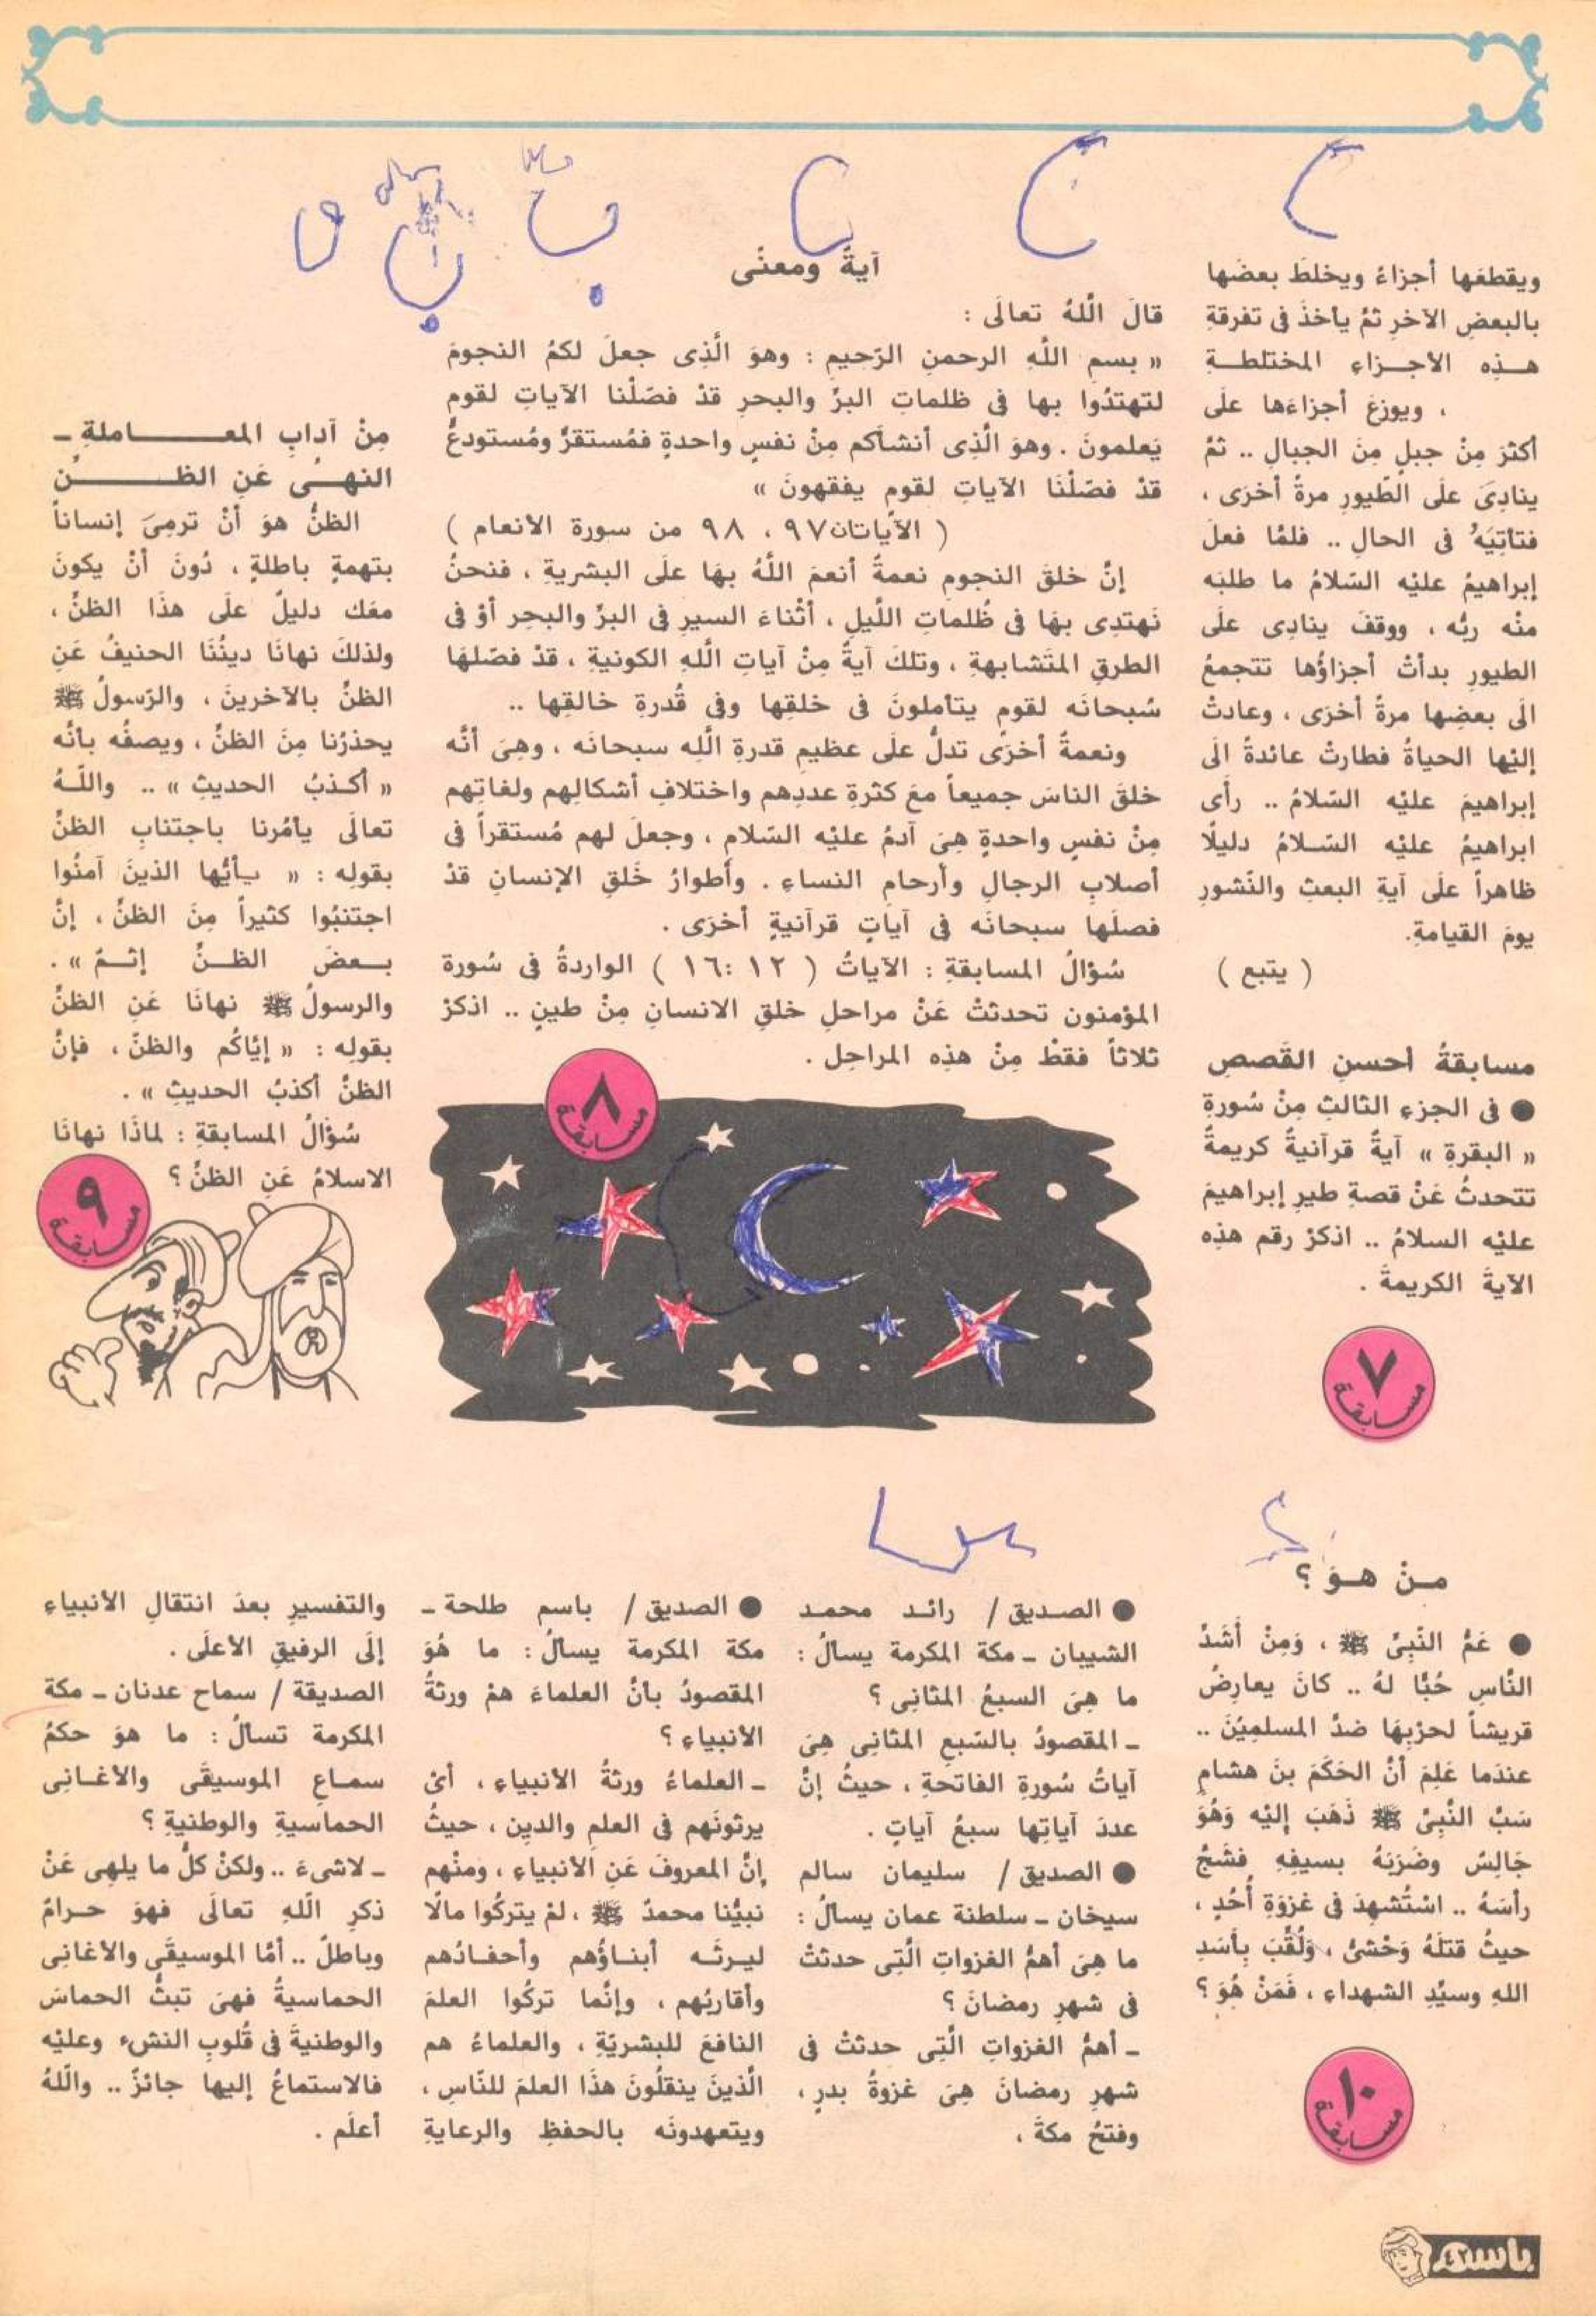 ويقطعَها أجزاءً ويخلطَ بعضَها
بالبعضِ الآخرِ ثمَّ يأخذَ فى تفرقةِ
هـذِه الأجـزاءِ المختلطـةِ
، ويوزعَ أجزاءَها علَى
أكثرَ مِنْ جبلٍ مِنَ الجبالِ .. ثمَّ
ينادِىَ علَى الطّيورِ مرةً أخرَى ،
فتأتِيَهُ فى الحالِ .. فلمَّا فعلَ
إبراهيمُ عليْه السّلامُ ما طلبَه
منْه ربُّه ، ووقفَ ينادِى علَى
الطيورِ بدأتْ أجزاؤُها تتجمعُ
الَى بعضِها مرةً أخرَى ، وعادتْ
إليْها الحياةُ فطارتْ عائدةً الَى
إبراهيمَ عليْه السّلامُ .. رأَى
ابراهيمُ عليْه السّلامُ دليلًا
ظاهراً علَى آيةِ البعثِ والنّشورِ
يومَ القيامةِ.
( يتبع )
مسابقةُ أحسنِ القَصصِ
● فى الجزءِ الثالثِ مِنْ سُورةِ
« البقرةِ » آيةً قرآنيةً كريمةً
تتحدثُ عَنْ قصةِ طيرِ إبراهيمَ
عليْه السلامُ .. اذكرْ رقم هذِه
الآيةَ الكريمةَ .
٧
مسابقة
آيةٌ ومعنًى
قالَ اللَّهُ تعالَى :
« بسمِ اللَّهِ الرحمنِ الرّحيمِ : وهوَ الَّذِى جعلَ لكمُ النجومَ
لتهتدُوا بها فى ظلماتِ البرِّ والبحرِ قدْ فصّلْنا الآياتِ لقومٍ
يَعلمونَ . وهوَ الَّذِى أنشأكم مِنْ نفسٍ واحدةٍ فمُستقرٌّ ومُستودعٌ
قدْ فصّلْنَا الآياتِ لقومٍ يفقهونَ »
( الآياتان٩٧ ، ٩٨ من سورة الأنعام )
إنَّ خلقَ النجومِ نعمةٌ أنعمَ اللَّهُ بهَا علَى البشريةِ ، فنحنُ
نَهتدِى بهَا فى ظُلماتِ اللَّيلِ ، أثْناءَ السيرِ فى البرِّ والبحرِ أوْ فى
الطرقِ المتَشابهةِ ، وتلكَ آيةٌ مِنْ آياتِ اللَّهِ الكونيةِ ، قدْ فصّلهَا
سُبحانَه لقومٍ يتأملونَ فى خلقِها وفى قُدرةِ خالقِها ..
ونعمةٌ أخرَى تدلُّ علَى عظيمِ قدرةِ اللَّهِ سبحانَه ، وهِىَ أنَّه
خلقَ الناسَ جميعاً معَ كثرةِ عددِهم واختلافِ أشكالِهم ولغاتِهم
مِنْ نفسٍ واحدةٍ هِىَ آدمُ عليْه السّلام ، وجعلَ لهم مُستقراً فى
أصلابِ الرجالِ وأرحامِ النساءِ . وأطوارُ خَلقِ الإنسانِ قدْ
فصلَها سبحانَه فى آياتٍ قرآنيةٍ أخرَى .
سُؤالُ المسابقةِ : الآياتُ ( ١٢ :١٦ ) الواردةُ فى سُورة
المؤمنون تحدثتْ عَنْ مراحلِ خلقِ الانسانِ مِنْ طينٍ .. اذكرْ
ثلاثاً فقطْ مِنْ هذِه المراحِل .
٨
مسابقة
مِنْ آدابِ المعـــاملةِ ـ
النهـىُ عَنِ الظـــنّ
الظنُّ هوَ أنْ ترمِىَ إنساناً
بتهمةٍ باطلةٍ ، دُونَ أنْ يكونَ
معَك دليلٌ علَى هذَا الظنِّ ،
ولذلكَ نهانَا دينُنَا الحنيفُ عَنِ
الظنِّ بالآخرينَ ، والرّسولُ ﷺ
يحذرُنا مِنَ الظنِّ ، ويصفُه بأنَّه
« أكـذبُ الحديثِ » .. واللَّـهُ
تعالَى يأمُرنا باجتنابِ الظنِّ
بقولِه : « يـأيُّها الذينَ آمنُوا
اجتنبُوا كثيراً مِنَ الظنِّ ، إنَّ
بـعضَ الظـنِّ إثـمٌ » .
والرسولُ ﷺ نهانَا عَنِ الظنِّ
بقولِه : « إيَّاكُم والظنَّ ، فإنَّ
الظنَّ أكذبُ الحديثِ » .
سُؤالُ المسابقةِ : لماذَا نهانَا
الاسلامُ عَنِ الظنِّ ؟
٩
مسابقة
مـنْ هـوَ ؟
● عَمُّ النَّبِىِّ ﷺ ، وَمِنْ أَشَدِّ
النَّاسِ حُبًّا لهُ .. كانَ يعارِضُ
قريشاً لحرْبِهَا ضدَّ المسلمِيْنَ ..
عندَما عَلِمَ أنَّ الحَكَمَ بنَ هشامٍ
سَبَّ النَّبِىَّ ﷺ ذَهَبَ إليْه وَهُوَ
جَالِسٌ وضَرَبَهُ بسيفِهِ فشَجَّ
رأسَهُ .. اسْتُشهدَ فى غزوَةِ أُحُدٍ ،
حيثُ قتلَهُ وَحْشىُّ ، وَلُقِّبَ بِأَسَدِ
اللهِ وسيِّدِ الشهداءِ ، فَمَنْ هُوَ ؟
١٠
مسابقة
● الصديق / رائـد محمـد
الشيبان ـ مكة المكرمة يسألُ :
ما هِىَ السبعُ المثانِى ؟
ـ المقصودُ بالسّبعِ المثانِى هِىَ
آياتُ سُورةِ الفاتحةِ ، حيثُ إنَّ
عددَ آياتِها سبعُ آياتٍ .
● الصديق / سليمان سالم
سيخان ـ سلطنة عمان يسألُ :
ما هِىَ أهمُّ الغزواتِ الَّتِى حدثتْ
فى شهرِ رمضانَ ؟
ـ أهمُّ الغزواتِ الَّتِى حدثتْ فى
شهرِ رمضانَ هِىَ غزوةُ بدرٍ ،
وفتحُ مكةَ ،
● الصديق / باسم طلحة ـ
مكة المكرمة يسألُ : ما هُوَ
المقصودُ بأنَّ العلماءَ همْ ورثةُ
الأنبياءِ ؟
ـ العلماءُ ورثةُ الأنبياءِ ، أىْ
يرثونَهم فى العلمِ والدينِ ، حيثُ
إنَّ المعروفَ عَنِ الأنبياءِ ، ومنْهم
نبيُّنا محمدٌ ﷺ ، لمْ يتركُوا مالًا
ليـرثَـه أبنـاؤُهم وأحفـادُهم
وأقاربُهم ، وإنَّما تركُوا العلمَ
النافعَ للبشريّةِ ، والعلماءُ هم
الَّذينَ ينقلُونَ هذَا العلمَ للنّاسِ ،
ويتعهدونَه بالحفظِ والرعايةِ
والتفسيرِ بعدَ انتقالِ الأنبياءِ
إلَى الرفيقِ الأعلَى .
الصديقة / سماح عدنان ـ مكة
المكرمة تسألُ : ما هوَ حكمُ
سمـاعِ الموسيقَى والأغـانِى
الحماسيةِ والوطنيةِ ؟
ـ لاشىءَ .. ولكنْ كلُّ ما يلهِى عَنْ
ذكرِ اللَّهِ تعالَى فهوَ حـرامٌ
وباطلٌ .. أمَّا الموسيقَى والأغانِى
الحماسيةُ فهىَ تبثُّ الحماسَ
والوطنيةَ فى قُلوبِ النشءِ وعليْه
فالاستماعُ إليها جائزٌ .. واللَّهُ
أعلَم .
باسم